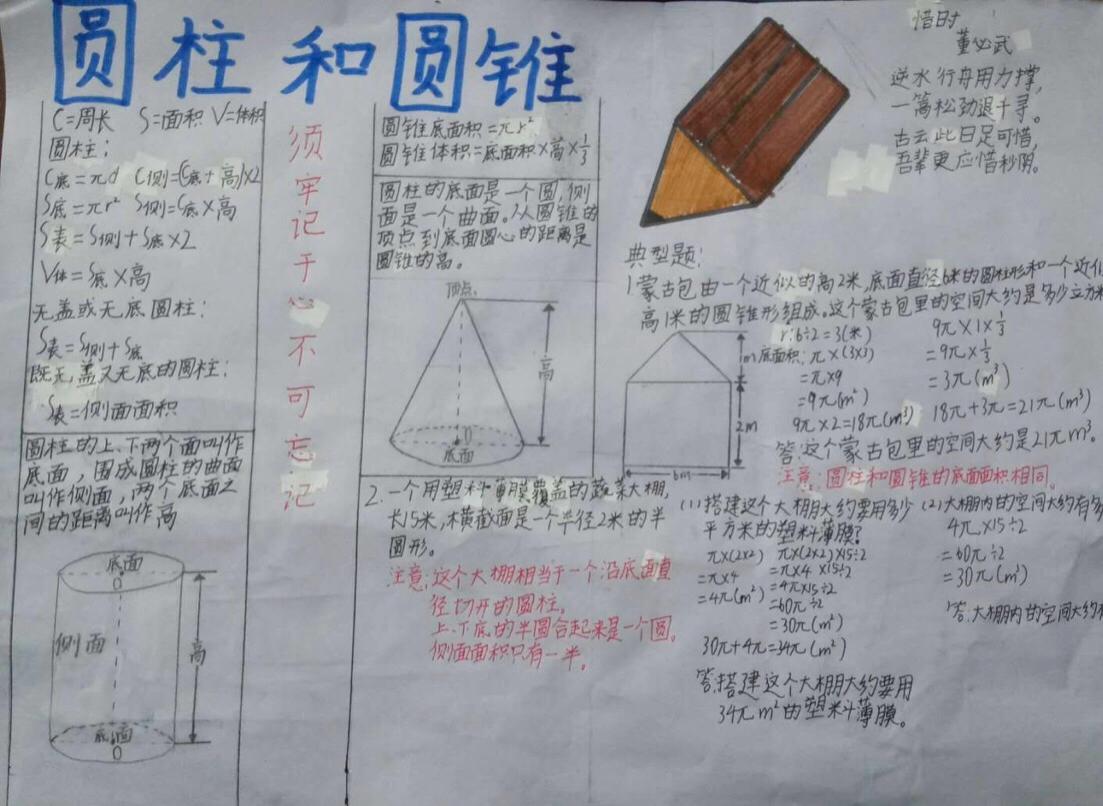 圆柱和圆锥
C=周长 S=面积 V=体积
圆柱:
C底=πd C侧=(C底+高)×2
S底=πr² S侧=C底×高
S表=S侧+S底×2
V体=S底×高
无盖或无底圆柱:
S表=S侧+S底
既无盖又无底的圆柱:
S表=侧面面积
圆柱的上、下两个面叫作
底面，围成圆柱的曲面
叫作侧面，两个底面之
间的距离叫作高
底面
O
侧面
高
底面
O
须牢记于心不可忘记
圆锥底面积=πr²
圆锥体积=底面积×高×1/3
圆柱的底面是一个圆，侧
面是一个曲面。从圆锥的
顶点到底面圆心的距离是
圆锥的高。
顶点
高
O
底面
惜时
董必武
逆水行舟用力撑，
一篙松劲退千寻。
古云此日足可惜，
吾辈更应惜秒阴。
典型题:
1.蒙古包由一个近似的高2米，底面直径6米的圆柱形和一个近似
高1米的圆锥形组成。这个蒙古包里的空间大约是多少立方米
1m
2m
6m
r:6÷2=3(米)
底面积:π×(3×3)
=π×9
=9π(m²)
9π×2=18π(m³)
9π×1×1/3
=9π×1/3
=3π(m³)
18π+3π=21π(m³)
答:这个蒙古包里的空间大约是21πm³。
注意:圆柱和圆锥的底面面积相同。
2.一个用塑料薄膜覆盖的蔬菜大棚，
长15米，横截面是一个半径2米的半
圆形。
注意:这个大棚相当于一个沿底面直
径切开的圆柱。
上、下底的半圆合起来是一个圆。
侧面面积只有一半。
(1)搭建这个大棚大约要用多少
平方米的塑料薄膜?
π×(2×2)
=π×4
=4π(m²)
π×(2×2)×15÷2
=π×4×15÷2
=4π×15÷2
=60π÷2
=30π(m²)
30π+4π=34π(m²)
答:搭建这个大棚大约要用
34πm²的塑料薄膜。
(2)大棚内的空间大约有多
4π×15÷2
=60π÷2
=30π(m³)
答:大棚内的空间大约